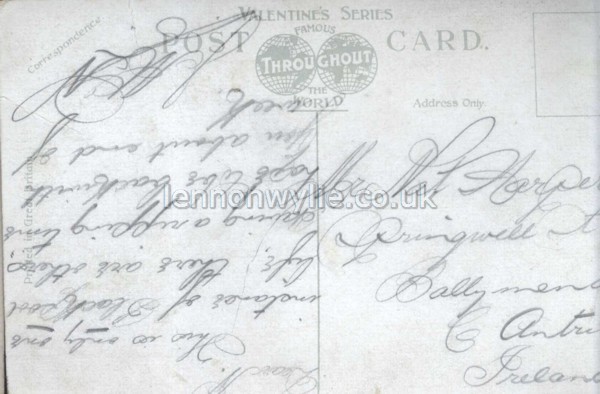 VALENTINE'S SERIES
POST CARD.
FAMOUS
THROUGHOUT
THE
WORLD
Correspondence
Address Only.
Printed in Great Britain
Dear W.
This is only one
instance of Blackpool
life, there are others,
having a ripping time
hope to be back with
you about end of
week.
Mr Wm Harper
Springwell St
Ballymena
C Antrim
Ireland
lennonwylie.co.uk